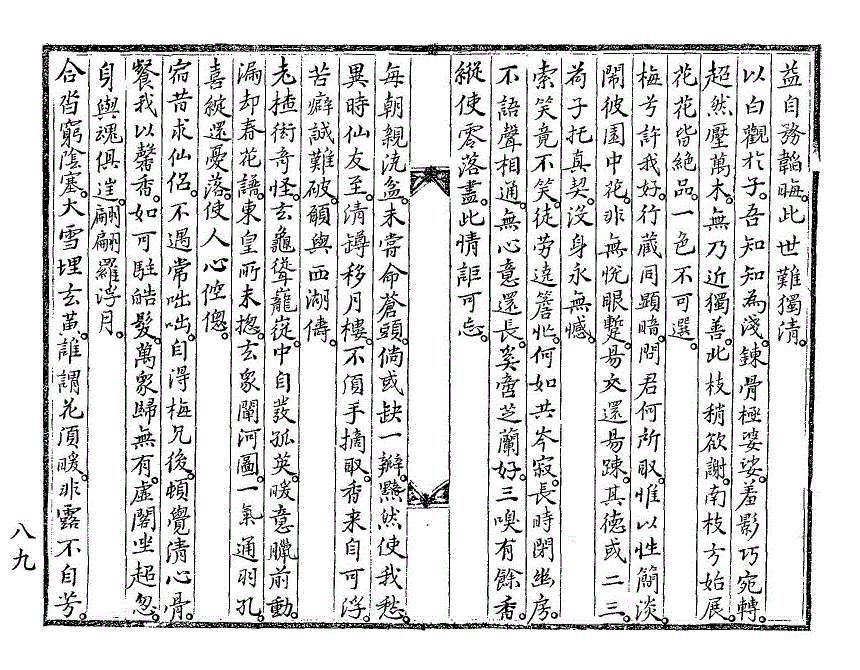 益自務韜晦。此世難獨清。
以白觀於子。吾知知為淺。鍊骨極婆娑。羞影巧宛轉。
超然壓萬木。無乃近獨善。此枝稍欲謝。南枝方始展。
花花皆絕品。一色不可選。
梅兮許我好。行藏同顯暗。問君何所取。惟以性簡淡。
鬧彼園中花。非無悅眼蹔。易交還易踈。其德或二三。
荷子托真契。沒身永無憾。
索笑竟不笑。徒劳遶簷忙。何如共岑寂。長時閉幽房。
不語聲相通。無心意還長。奚啻芝蘭好。三嗅有餘香。
縱使零落盡。此情詎可忘。
每朝親洗盆。未嘗命蒼頭。倘或缺一瓣。黯然使我愁。
異時仙友至。清罇移月樓。不須手摘取。香来自可浮。
苦癖誠難破。願與西湖儔。
老楂街奇怪。玄龜聳巃嵸。中自發孤英。暖意臘前動。
漏却春花譜。東皇所未揔。玄象闡河圖。一氣通羽孔。
喜綻還憂落。使人心倥傯。
宿昔求仙侶。不遇常咄咄。自得梅兄後。頓覺清心骨。
餐我以馨香。如可駐皓髮。萬象歸無有。虛閣坐超忽。
身與魂俱逞。翩翩羅浮月。
合沓窮陰塞。大雪埋玄黃。誰謂花須暖。非露不自芳。
八九